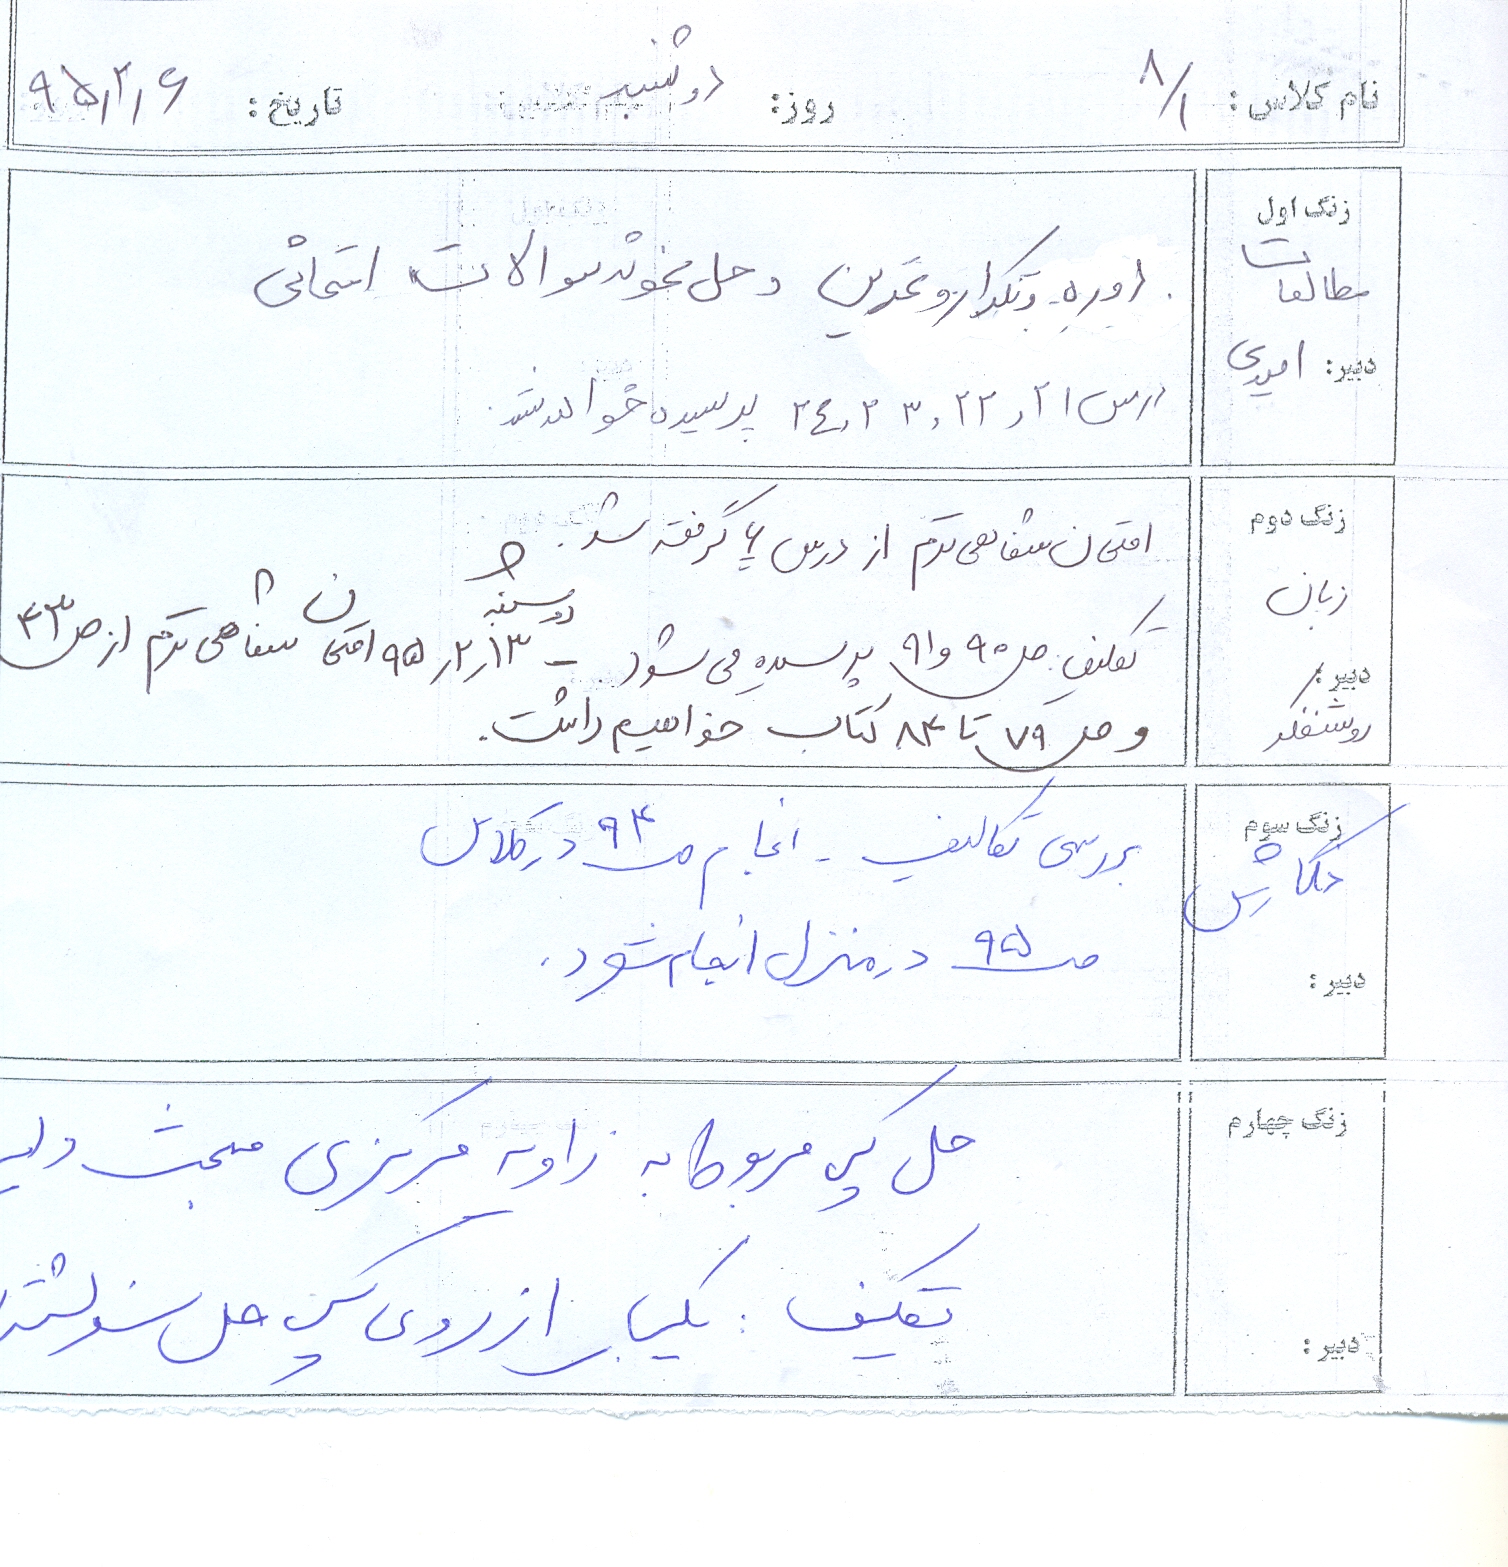 نام کلاس : ۸/۱ روز: دوشنبه تاریخ : ۹۵,۲,۶
زنگ اول
مطالعات
دبیر: امیدی
دوره و تکرار و تمرین و حل نمونه سوالات امتحانی
درس ۲۱ , ۲۲ , ۲۳ , ۲۴ پرسیده خواهد شد.
زنگ دوم
زبان
دبیر :
روشنفکر
امتحان شفاهی ترم از درس ۶ گرفته شد.
تکلیف: ص ۹۰ و ۹۱ پرسیده می شود. – دوشنبه ۹۵,۲,۱۳ امتحان شفاهی ترم از ص ۴۳
و ص ۷۹ تا ۸۴ کتاب خواهیم داشت.
زنگ سوم
نگارش
دبیر :
بررسی تکالیف - انجام ص ۹۴ در کلاس
ص ۹۵ در منزل انجام شود.
زنگ چهارم
دبیر :
حل کپی مربوط به زاویه مرکزی مبحث
تکلیف : یکبار از روی کپی حل